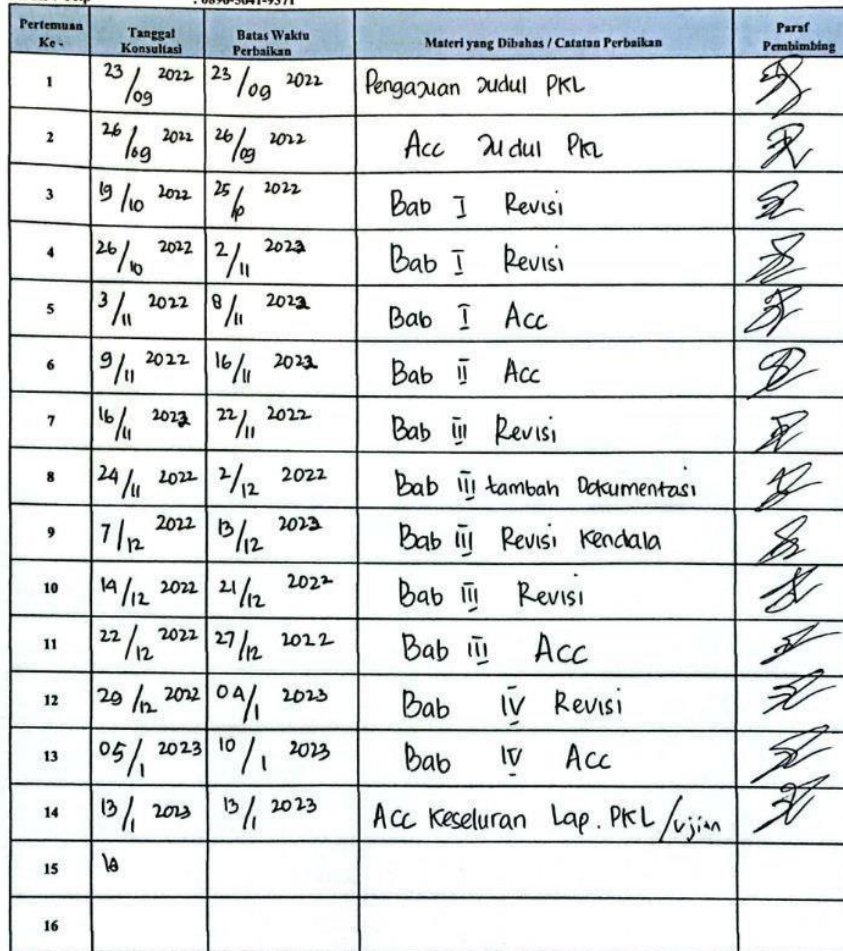 Pertemuan Ke - Tanggal Konsultasi Batas Waktu Perbaikan Materi yang Dibahas / Catatan Perbaikan Paraf Pembimbing
1 23/09 2022 23/09 2022 Pengajuan Judul PKL
2 26/09 2022 26/09 2022 Acc Judul PKL
3 19/10 2022 25/10 2022 Bab I Revisi
4 26/10 2022 2/11 2022 Bab I Revisi
5 3/11 2022 8/11 2022 Bab I Acc
6 9/11 2022 16/11 2022 Bab II Acc
7 16/11 2022 22/11 2022 Bab III Revisi
8 24/11 2022 2/12 2022 Bab III tambah Dokumentasi
9 7/12 2022 13/12 2022 Bab III Revisi Kendala
10 14/12 2022 21/12 2022 Bab III Revisi
11 22/12 2022 27/12 2022 Bab III Acc
12 29/12 2022 04/1 2023 Bab IV Revisi
13 05/1 2023 10/1 2023 Bab IV Acc
14 13/1 2023 13/1 2023 Acc Keseluran Lap. PKL/ujian
15
16